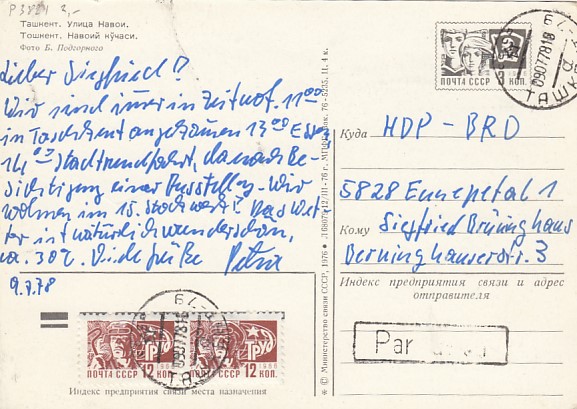 P3824 2,-
Ташкент. Улица Навои.
Тошкент. Навоий кўчаси.
Фото Б. Подгорного
Lieber Siegfried!
Wir sind immer in Zeitnot. 11⁰⁰
in Taschkent angekommen 13⁰⁰ Essen
14,⁰⁰ Stadtrundfahrt, danach Be-
sichtigung einer Ausstellung. Wir
wohnen im 15. Stockwerk! Das Wet-
ter ist natürlich wunderschön,
ca. 30°C. Viele Grüße Petra
9.7.78
ПОЧТА СССР 12 КОП.
ТРУД
1966
ПОЧТА СССР 12 КОП.
ТРУД
1966
09077818
Индекс предприятия связи места назначения
* © Министерство связи СССР, 1976 *
ПОЧТА СССР 3 КОП.
1966
09077818
ТАШК
Куда HDP - BRD
5828 Ennepetal 1
Кому Siegfried Brüninghaus
Berninghauserstr. 3
Индекс предприятия связи и адрес
отправителя
Par